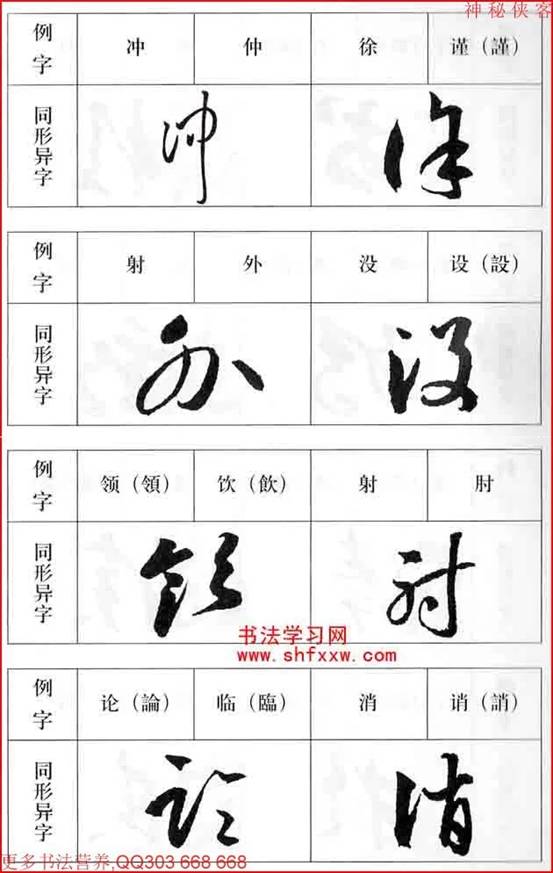 神秘侠客
例字 冲 仲 徐 谨（謹）
同形异字
例字 射 外 没 设（設）
同形异字
例字 领（領） 饮（飲） 射 肘
同形异字
书法学习网
www.shfxxw.com
例字 论（論） 临（臨） 消 诮（誚）
同形异字
更多书法营养,QQ303 668 668